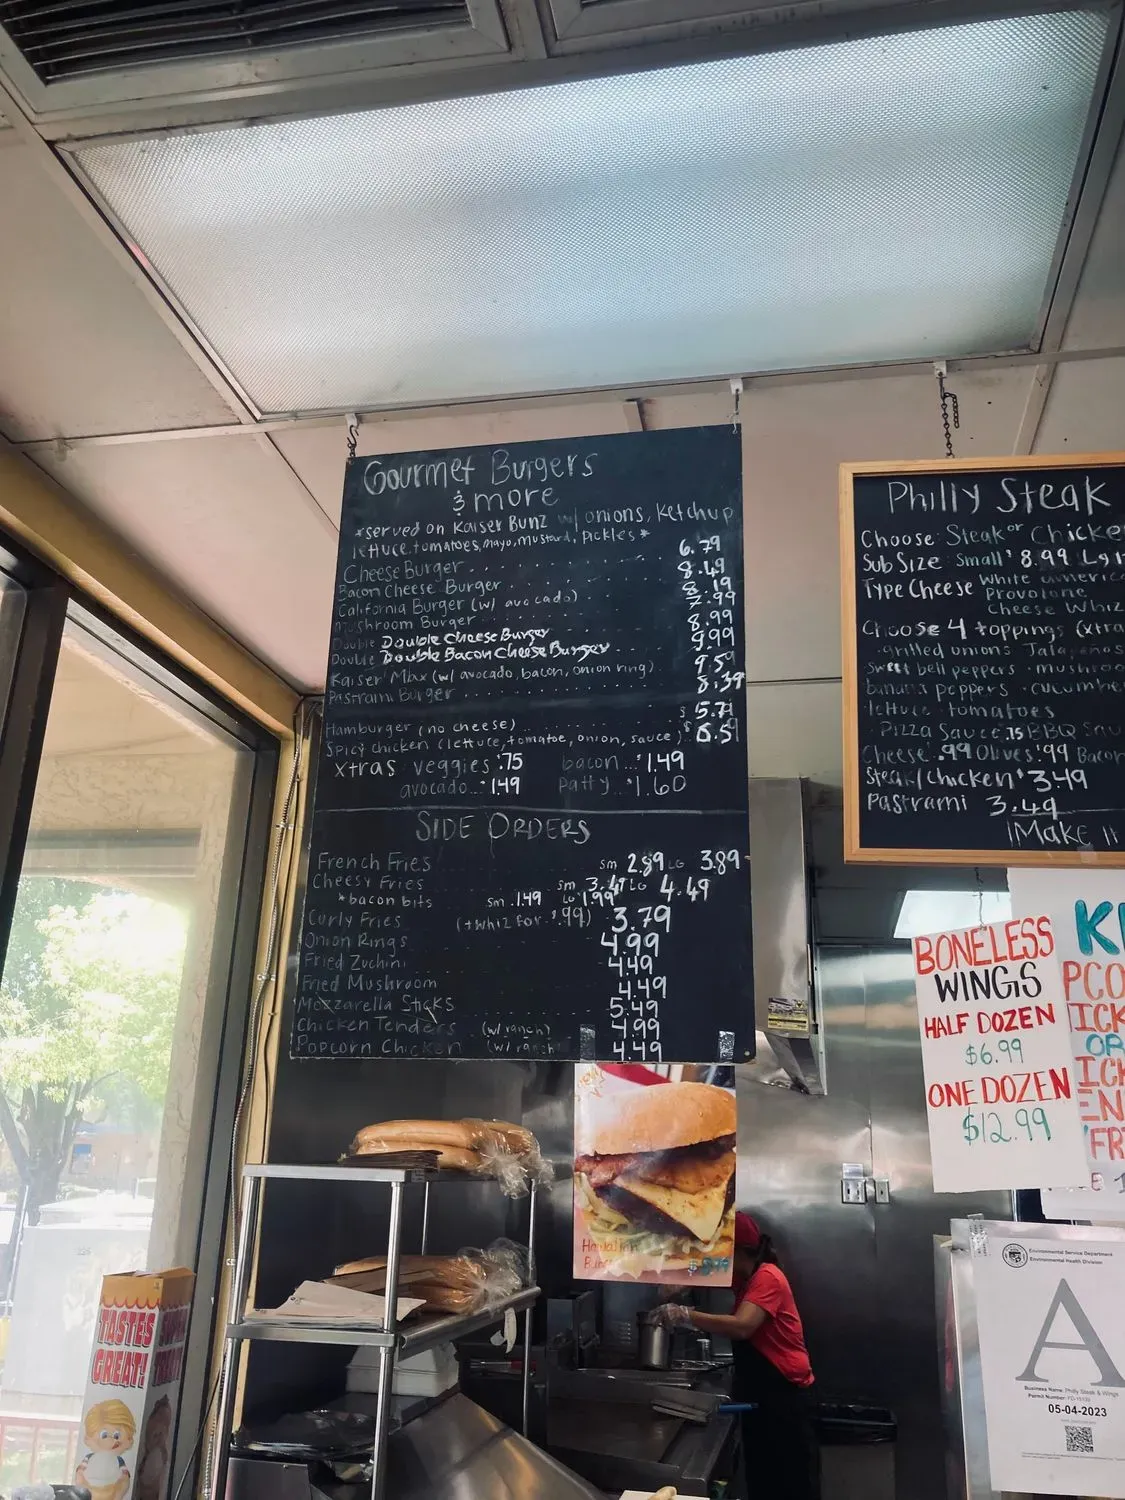 Gourmet Burgers
& more
*served on Kaiser Bunz w/ onions, ketchup
lettuce, tomatoes, mayo, mustard, pickles*
Cheese Burger 6.79
Bacon Cheese Burger 8.49
California Burger (w/ avocado) 8.19
Mushroom Burger 7.99
Double Double Cheese Burger 8.99
Double Double Bacon Cheese Burger 9.99
Kaiser Max (w/ avocado, bacon, onion ring) 9.59
Pastrami Burger 8.39
Hamburger (no cheese) $5.79
Spicy chicken (lettuce, tomatoe, onion, sauce)
xtras veggies .75 bacon... 1.49
avocado... 1.49 patty... 1.60
SIDE ORDERS
French Fries sm 2.89 LG 3.89
Cheesy Fries sm 3.47 LG 4.49
*bacon bits sm .1.49 LG 1.99
Curly Fries (+ whiz for .99) 3.79
Onion Rings 4.99
Fried Zuchini 4.49
Fried Mushroom 4.49
Mozzarella Sticks 5.49
Chicken Tenders (w/ ranch) 4.99
Popcorn Chicken (w/ ranch) 4.49
Philly Steak
Choose Steak or Chicke
Sub Size Small 8.99 Lg
Type Cheese White americ
Provolone
Cheese Whiz
Choose 4 toppings (xtra
grilled onions Jalapeños
sweet bell peppers mushroo
banana peppers cucumbe
lettuce tomatoes
Pizza Sauce .75 BBQ Sau
Cheese .99 Olives .99 Bacon
Steak/Chicken 3.49
Pastrami 3.49
Make It
BONELESS
WINGS
HALF DOZEN
$6.99
ONE DOZEN
$12.99
K
PCO
ICK
OR
ICK
EN
FR
TASTES
GREAT!
Environmental Service Department
Environmental Health Division
A
Business Name: Philly Steak & Wings
Permit Number:
05-04-2023